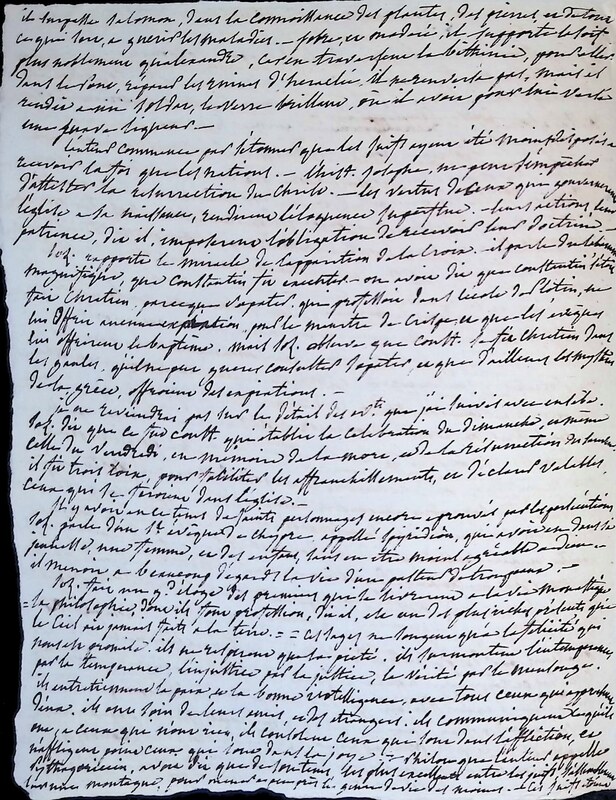 il surpasse Salomon, dans la connoissance des plantes, des pierres, et de tout
ce qui sert, a guerir les maladies. — sobre, et modéré, il supporte la soif
plus noblement qu'alexandre, car en traversant la bithinie, pour aller
dans le Pont, et
rendit a un soldat, le verre brillant, où il avoit pour lui versé
une pure liqueur —
l'auteur commence par s'étonner que les juifs ayent été moins disposés a
recevoir la foi que les nations. — l'hist. Josephe, ne peut s'empêcher
d'attester la resurrection du Christ. — les vertus de ceux qui gouvernerent
l'église a sa naissance, rendirent l'éloquence superflue. — leurs actions, leur
patience, dit il, imposerent l'obligation de recevoir leur doctrine.
Soz. rapporte le miracle de l'apparition de la Croix. il parle du labarum
magnifique que Constantin fit executer. — on avoit dit que constantin s'étoit
fait Chretien, parceque Sopater, qui professoit dans l'école de Plotin, ne
lui offrit aucune expiation, pour le meurtre de Crispe et que les eveques
lui offrirent le baptême. mais Soz. observe que const. se fit Chretien dans
les gaules, qu'il ne put gueres consulter Sopater, et que d'ailleurs les mystères
de la grèce, offroient des expiations. —
je ne reviendrai pas sur le détail des que j'ai suivis avec eusèbe.
Soz. dit que ce fut const. qui établit la celebration du dimanche, et même
celle du Vendredi, en mémoire de la mort, et de la résurrection du
il fit trois loix, pour faciliter les affranchissements, et déclara valables
ceux qui se feroient dans l'eglise. —
il y avoit en ce tems de saints personnages encore eprouvés par les persécutions
Soz. parle d'un St. evèque de chypre, appellé Spiridion, qui avoit eu dans sa
jeunesse, une femme, et des enfans, sans en être moins agréable a dieu. —
il menoit a beaucoup d'égards la vie d'un pasteur de troupeaux. —
Soz. fait un g. éloge des premiers qui se livrerent a la vie monastique
= la philosophie, dont ils font profession, dit il, est un des plus riches présents, que
le Ciel ait jamais faits a la terre. — = Ces sages ne songent qu'a la félicité qui
nous est promise. ils ne respirent que la piété. ils surmontent l'intemperance,
par la temperance, l'injustice par la justice, la vérité par le mensonge.
ils entretiennent la paix, et la bonne intelligence, avec tous ceux qui approchent
d'eux. ils ont soin de leurs amis, et des etrangers. ils communiquent ce qu'ils
ont, a ceux qui n'ont rien, ils consolent ceux qui sont dans l'affliction, et
s'affligent pour ceux, qui sont dans la joye. — Philon que l'auteur appelle
Pythagoricien, avoit dit que de son tems, les plus excellens entre les juifs
sur une montagne, pour mener a peu près le genre de vie des moines. — Ces juifs